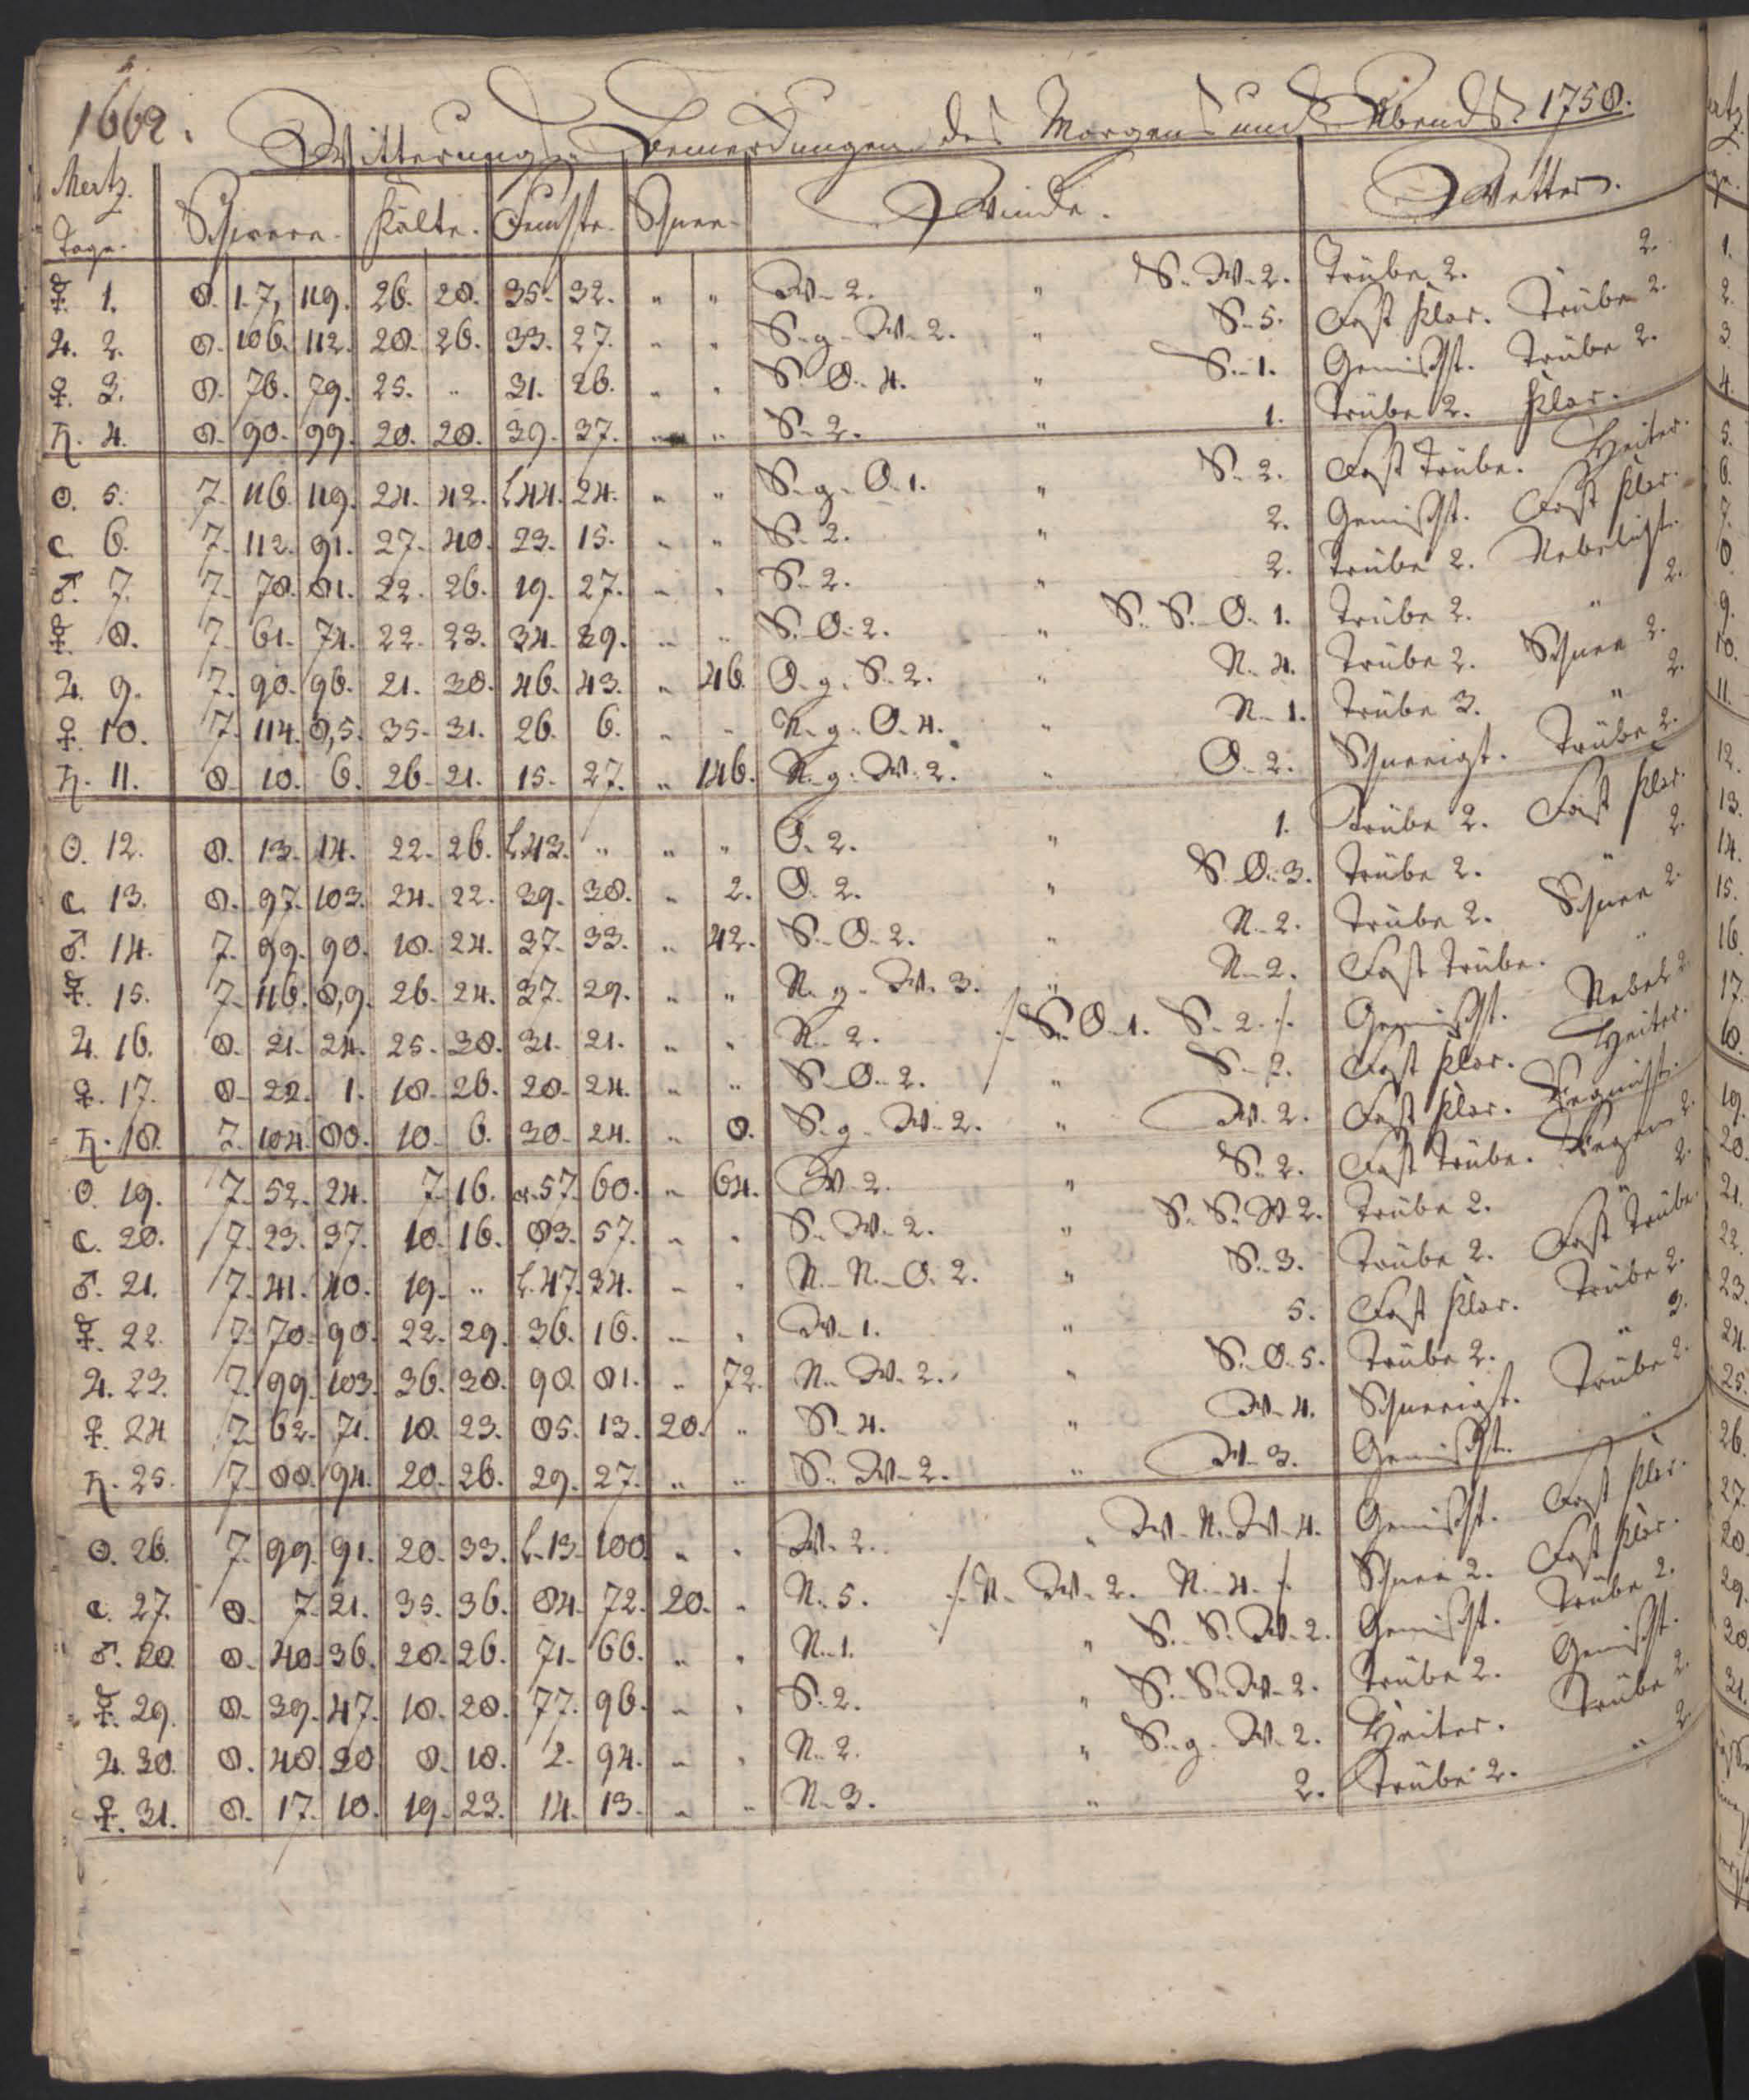 1662. Witterungs Bemerckungen des Morgens und Abends. 1758.
Mertz. Tage. Schwere. Kälte. Feuchte. Schnee. Winde. Wetter.
☿. 1. 8. 1.7, 119. 26. 28. 35. 32. " " W. 2. " S. W. 2. Trübe 2. 2.
♃. 2. 8. 106. 112. 28. 26. 33. 27. " " S. g. W. 2. " S. 5. Fast klar. Trübe 2.
♀. 3. 8. 78. 79. 25. " 31. 26. " " S. O. 4. " S. 1. Gemischt. Trübe 2.
♄. 4. 8. 90. 99. 20. 28. 39. 37. " " S. 2. " 1. Trübe 2. klar.
☉. 5. 7. 116. 119. 24. 42. L 44. 24. " " S. g. O. 1. " S. 2. Fast Trübe. Heiter.
☾ 6. 7. 112. 91. 27. 40. 23. 15. " " S. 2. " 2. Gemischt. Fast klar.
♂. 7. 7. 78. 81. 22. 26. 19. 27. " " S. 2. " 2. Trübe 2. Nebelicht.
☿. 8. 7. 61. 74. 22. 23. 34. 39. " " S. O. 2. " S. S. O. 1. Trübe 2. " 2.
♃. 9. 7. 90. 96. 21. 38. 46. 43. " 46. O. g. S. 2. " N. 4. Trübe 2. Schnee 2.
♀. 10. 7. 114. 8,5. 35. 31. 26. 6. " " N. g. O. 4. " N. 1. Trübe 3. " 2.
♄. 11. 8. 10. 6. 26. 21. 15. 27. " 146. N. g. W. 2. " O. 2. Schneeigt. Trübe 2.
☉. 12. 8. 13. 14. 22. 26. L 43. " " " O. 2. " 1. Trübe 2. Fast klar.
☾ 13. 8. 97. 103. 24. 22. 39. 38. " 2. O. 2. " S. O. 3. Trübe 2. " 2.
♂. 14. 7. 99. 90. 18. 24. 37. 33. " 42. S. O. 2. " N. 2. Trübe 2. Schnee 2.
☿. 15. 7. 116. 8,9. 26. 24. 37. 29. " " N. g. W. 3. " N. 2. Fast Trübe. "
♃. 16. 8. 21. 24. 25. 38. 31. 21. " " N. 2. /. S. O. 1. S. 2. /. Gemischt. Nebel 2.
♀. 17. 8. 22. 1. 18. 26. 28. 24. " " S. O. 2. " S. 2. Fast klar. Heiter.
♄. 18. 7. 104. 80. 10. 6. 30. 24. " 8. S. g. W. 2. " W. 2. Fast klar. Regnicht.
☉. 19. 7. 52. 24. 7. 16. 57. 60. " 64. W. 2. " S. 2. Fast Trübe. Regen 2.
☾. 20. 7. 23. 37. 10. 16. 83. 57. " " S. W. 2. " S. S. W. 2. Trübe 2. " 2.
♂. 21. 7. 41. 40. 19. " L. 47. 34. " " N. N. O. 2. " S. 3. Trübe 2. Fast Trübe.
☿. 22. 7. 70. 90. 22. 29. 36. 16. " " W. 1. " 5. Fast klar. Trübe 2.
♃. 23. 7. 99. 103. 36. 38. 98. 81. " 72. N. W. 2. " S. O. 5. Trübe 2. " 3.
♀. 24 7. 62. 71. 18. 23. 85. 13. 20. " S. 4. " W. 4. Schneeigt. Trübe 2.
♄. 25. 7. 88. 94. 20. 26. 29. 27. " " S. W. 2. " W. 3. Gemischt. "
☉. 26. 7. 99. 91. 20. 33. L. 13. 100. " " W. 2. " W. N. W. 4. Gemischt. Fast klar.
☾. 27. 8. 7. 21. 35. 36. 84. 72. 20. " N. 5. /. N. W. 2. N. 4. /. Schnee 2. Fast klar.
♂. 28. 8. 40. 36. 28. 26. 71. 66. " " N. 1. " S. S. W. 2. Gemischt. Trübe 2.
☿. 29. 8. 39. 47. 18. 28. 77. 96. " " S. 2. " S. S. W. 2. Trübe 2. Gemischt.
♃. 30. 8. 48. 30 8. 18. 2. 94. " " N. 2. " S. g. W. 2. Heiter. Trübe 2.
♀. 31. 8. 17. 10. 19. 23. 14. 13. " " N. 3. " 2. Trübe 2. " 2.